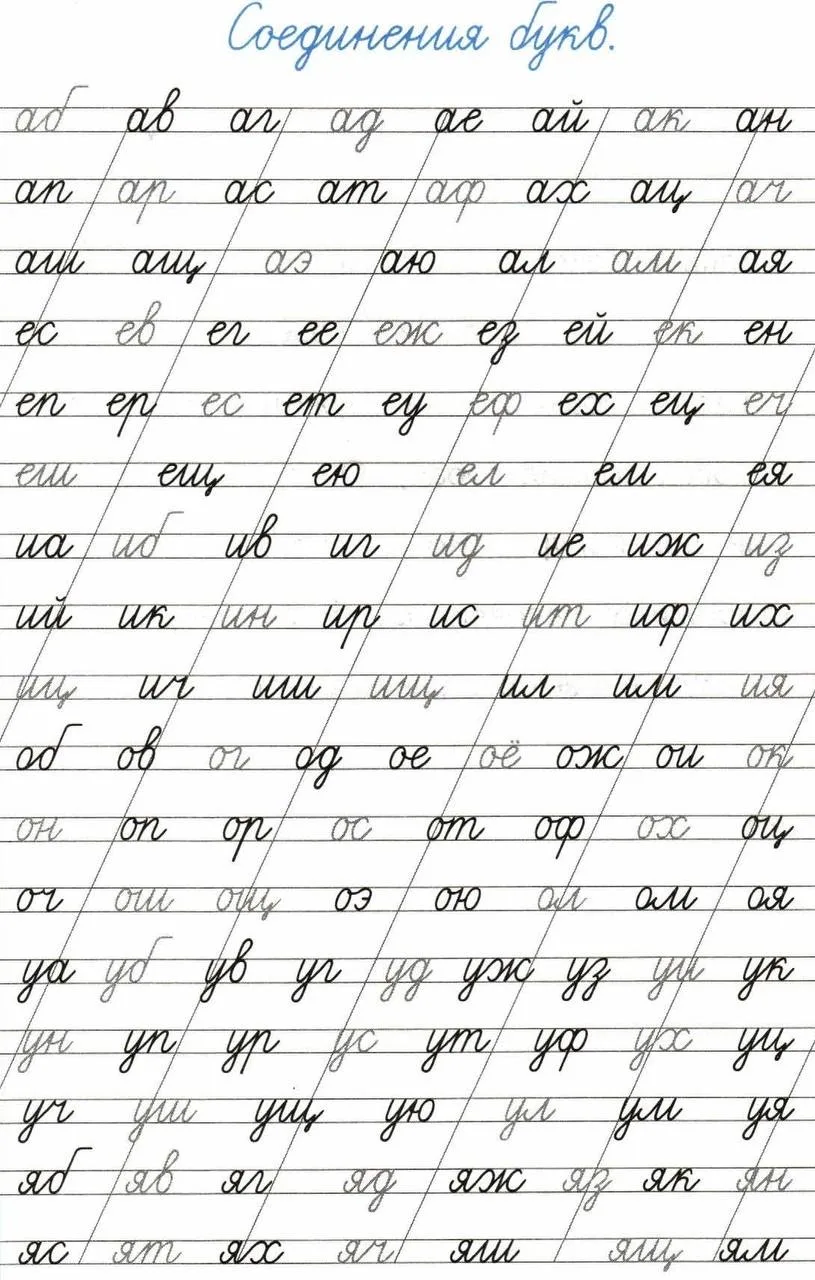 Соединения букв.
аб ав аг ад ае ай ак ан
ап ар ас ат аф ах ац ач
аш ащ аэ аю ал ам ая
ес ев ег ее еж ез ей ек ен
еп ер ес ет еу еф ех ец еч
еш ещ ею ел ем ея
иа иб ив иг ид ие иж из
ий ик ин ир ис ит иф их
иц ич иш ищ ил им ия
об ов ог од ое оё ож ои ок
он оп ор ос от оф ох оц
оч ош ощ оэ ою ол ом оя
уа уб ув уг уд уж уз уи ук
ун уп ур ус ут уф ух уц
уч уш ущ ую ул ум уя
яб яв яг яд яж яз як ян
яс ят ях яч яш ящ ям